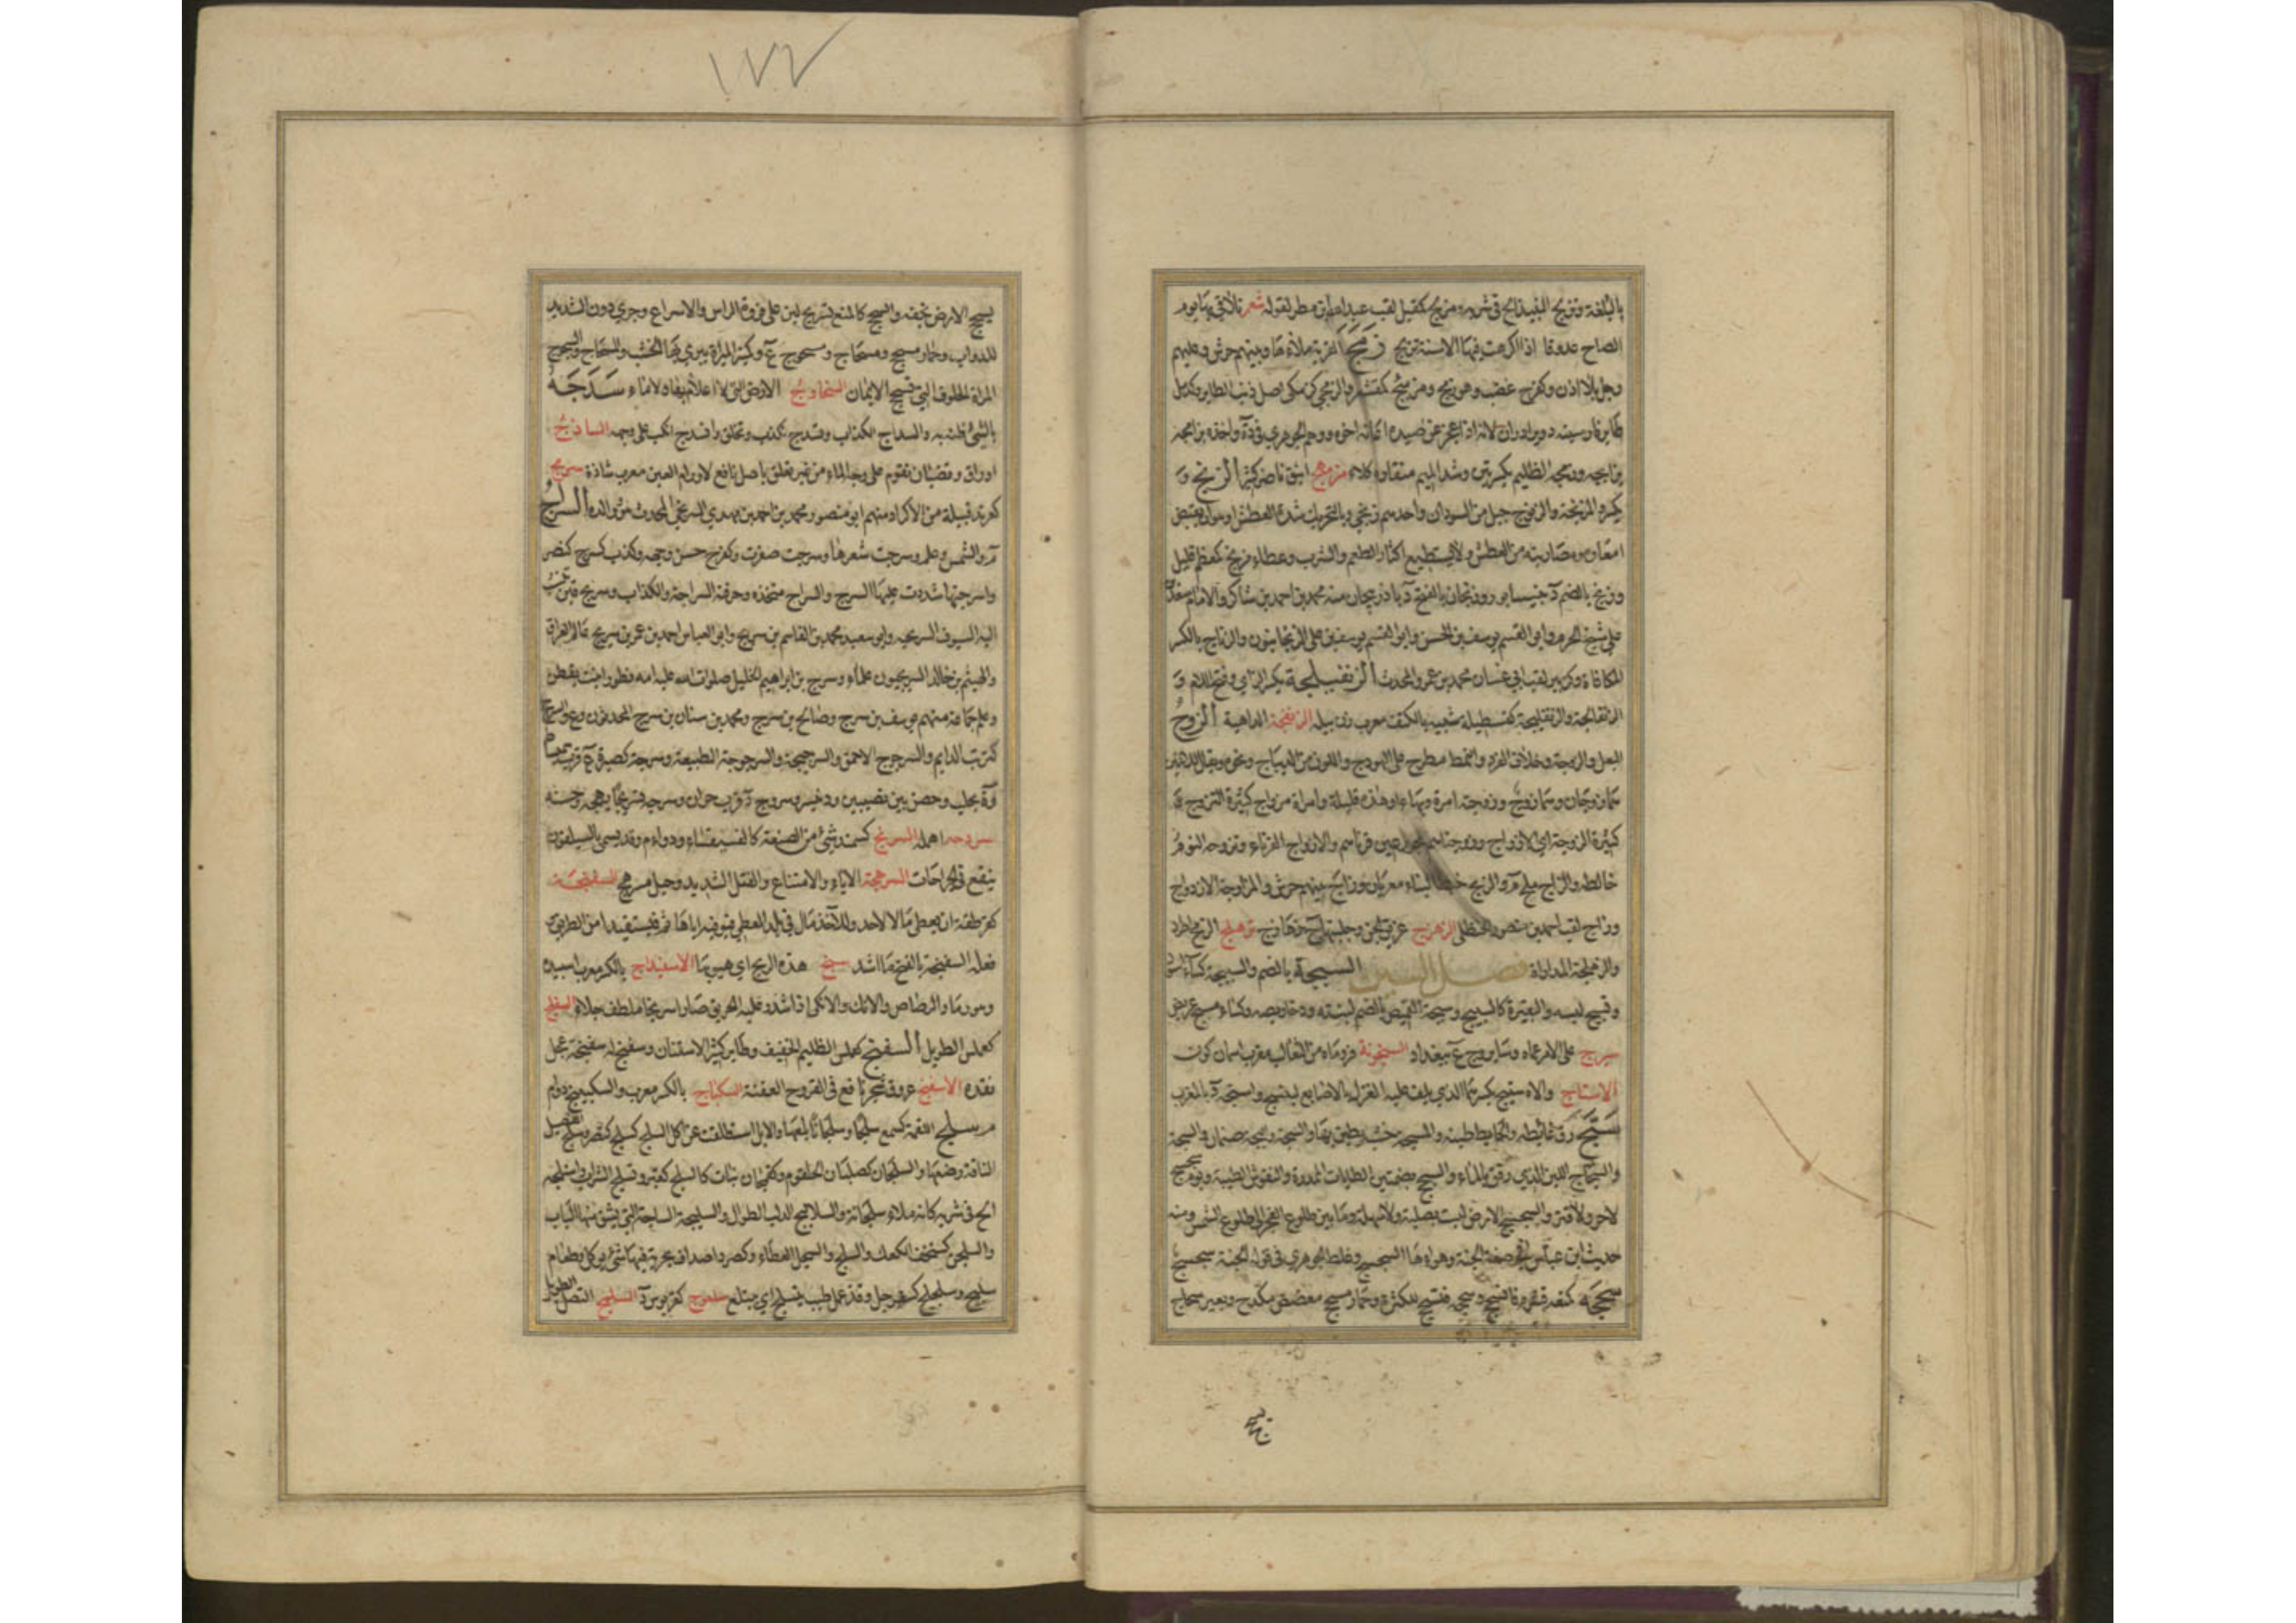 بالبلغة وتزيج النبيذ الح في شربه ومزيج كقبل لقب عبد الله بن مطر لقوله شعر تلاقي بها يوم
الصاح عدوها اذا اكرهت فيها الاسنة تزيج زمج القربة ملاها وبينهم حرش وعليهم
دخل بلا اذن وكفرح غضب وهو زمج ومزمئج كمقشعر والزمجى كزمكى اصل ذنب الطائر وكدمل
طائر فارسيته دوبرادران لانه اذا عجز عن صيده اعانه اخوه ووهم الجوهري في ده واخذه بزامجه
بزابجه وزمجة الظليم بكسرتين وشد الميم منقاره كلاء مزمهج انيق ناضر كثير الزنج و
يكسر والمزنجة والزنوج جيل من السودان واحدهم زنجي وبالتحريك شدة العطش او هو ان تقبض
امعاؤه ومصارينه من العطش ولا يستطيع اكثار الطعم والشرب وعطاء مزنج كمعظم قليل
وزنج بالضم ة بنيسابور وزنجان بالفتح د باذربيجان منه محمد بن احمد بن شاكر والامام سعد بن
علي شيخ الحرم وابو القسم يوسف بن الحسن وابو القسم يوسف بن علي الزنجانيون والزناج بالكسر
المكافاة وكزبير لقب ابي غسان محمد بن عمرو المحدث الزنفيلجة بكسر الزاي وفتح اللام و
الزنفالجة والزنفليجة كقسطيلة شبيه بالكنف معرب زن بيله الزنفجة الداهية الزوج
البعل والزوجة وخلاف الفرد والنمط يطرح على الهودج واللون من الديباج ونحوه ويقال للاثنين
هما زوجان وهما زوج وزوجته امرة وبها او هذه قليلة وامراة مزواج كثيرة التزوج و
كثيرة الزوجة اي الازواج وزوجناهم بحور عين قرناهم والازواج القرناء وتزوجه النوم
خالطه والزاج ملح م والزيج خيط البناء معربان وزاج بينهم حرش والمزاوجة الازدواج
وزاج لقب احمد بن منصور الحنظلي الزهزج عزيف الجن وجلبتها ج زهازج تزهلج الرمح اطرد
والزهلجة المداراة فصل السين السبجة بالضم والسبيجة كساء اسود
وتسبج لبسه والبقيرة كالسبيج وسبجة القميص بالضم لبنته ودخاريصه وكساء مسبج عريض
سبرج علي الامر عماه وسابروج ع ببغداد السبنجونة فروة من الثعالب معرب آسمان كون
الاستاج والاستيج بكسرهما الذي يلف عليه الغزل بالاصابع لينسج واستجة د بالمغرب
سج رق غائطه والحائط طينه والمسجة خشبة يطين بها والسجة وبجة صنمان والسجة
والسجاج اللبن الذي رقق بالماء والسجج بضمتين الطايات الممدرة والنفوس الطيبة ويوم سجسج
لا حر ولا قر والسجسج الارض ليست بصلبة ولا سهلة وما بين طلوع الفجر الى طلوع الشمس ومنه
حديث ابن عباس في صفة الجنة وهواءها السجسج وغلط الجوهري في قوله الجنة سجسج
سحجه كمنعه قشره فانسحج وسحجه فتسحج للكثرة وحمار مسحج معضض مكدح وبعير سحاج
يسحج
يسحج الارض بخفه والسحج كالمنع تسريح لين على فروة الراس والاسراع وجري دون الشديد
للدواب وحمار مسحج ومسحاج وسحوج ع وكسر المبراة يبرى بها الخشب والسحاج والسحوج
المراة الحلوف التي تسحج الايمان السخاوج الارض التي لا اعلام بها ولا ماء سدجه
بالشيء ظنه به والسداج الكذاب وتسدج تكذب وتخلق وانسدج انكب على وجهه الساذج
اوراق وقضبان تقوم على وجه الماء من غير تعلق باصل نافع لاورام العين معرب شاذه سربج
كعربد قبيلة من الاكراد منهم ابو منصور محمد بن احمد بن مهدي السربجي المحدث هو ووالده السراج
م والشمس وعلم وسرجت شعرها وسرجت ضفرت وكفرح حسن وجهه وكذب كسرج كنصر
واسرجتها شددت عليها السرج والسراج متخذه وحرفته السراجة والكذاب وسريج قين تنسب
اليه السيوف السريجية وابو سعيد محمد بن القاسم بن سريج وابو العباس احمد بن عمر بن سريج عالم العراق
والهيثم بن خالد السريجيون علماء وسرج بن ابراهيم الخليل صلوات الله عليه امه قطورا بنت يقطن
وعلم جماعة منهم يوسف بن سرج وصالح بن سرج ومحمد بن سنان بن سرج المحدثون
كزبب الدايم والسرجوج الاحمق والسرجيجة والسرجوجة الطبيعة وسرجة كصبرة ع قرب سميساط
و ة بحلب وحصن بين نصيبين ودنيسر وسروج د قرب حران وسرجه تسريجا بهجه وحسنه
سردجه اهمله السرنج كسمند شيء من الصنعة كالفسيفساء ودواء م وقد يسمى بالسيلقون
ينفع في الجراحات السرهجة الاباء والامتناع والفتل الشديد وحبل مسرهج السفتجة
كقرطقة ان يعطي مالا لاحد وللاخذ مال في بلد المعطي فيوفيه اياها ثم فيستفيد امن الطريق و
فعله السفتجة بالفتح ما اشد سفج هذه الريح اي هبوبها الاسفيداج بالكسر معرب اسپيده
وهو رماد الرصاص والانك والانكى اذا شدد عليه الحريق صار اسرنجا ملطف جلاء السفلج
كعملس الطويل السفنج كعملس الظليم الخفيف وطائر كثير الاستنان وسفنج له سفنجة عجل
نقده الاسفنج عروق شجر نافع في القروح العفنة السكباج بالكسر معرب والسكبينج دواء
م سلج اللقمة كسمع سلجا وسلجانا بلعها والابل استطلقت عن اكل السلج كسلج كنصر وسلج الفصيل
الناقة رضعها والسلجان كصليان الحلقوم وكقبان نبات كالسلج كقبر وتسلج الشراب واستلجه
الح في شربه كانه ملا به سلجانه والسلاليج الدلب الطوال والسليجة الساجة التي يشق منها الباب
والسلجن كسخخف الكعك والسلج والسجل العطاء وكصرد اصداف بحرية فيها شيء يؤكل وطعام
سليج وسلجلج كسفرجل وقذعمل طيب يتسلج اي يبتلع سلعوج كقربوس د السلهج النصل الطويل
١٧٢